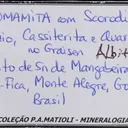 OMAMITA com Scorodi
io, Cassiterita e Quar
no Graisen
Albit
to de Sn de Mangabeira
-Fica, Monte Alegre, Go
Brasil
COLEÇÃO P.A.MATIOLI - MINERALOGIA